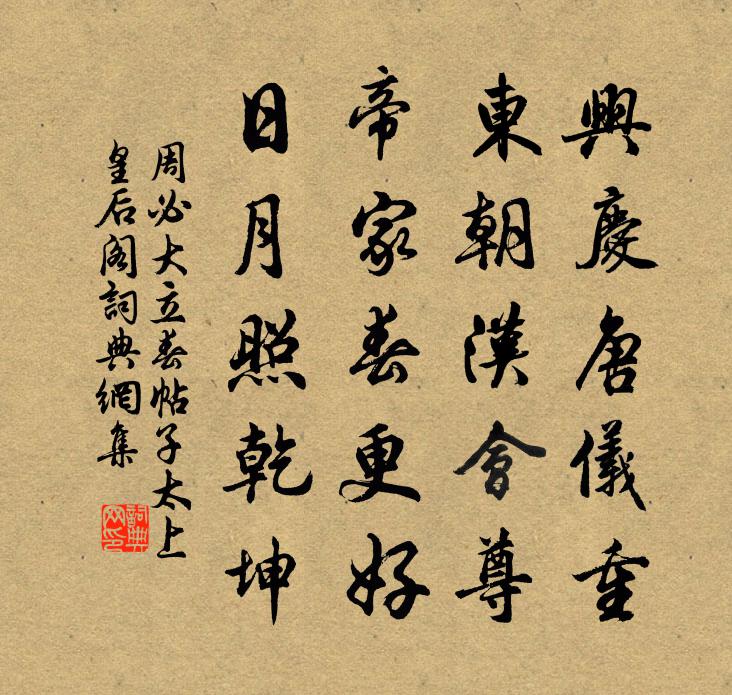 興慶唐儀重
東朝漢會尊
帝家春更好
日月照乾坤
周必大立春帖子太上
皇后閣詞典網集
詞典網印